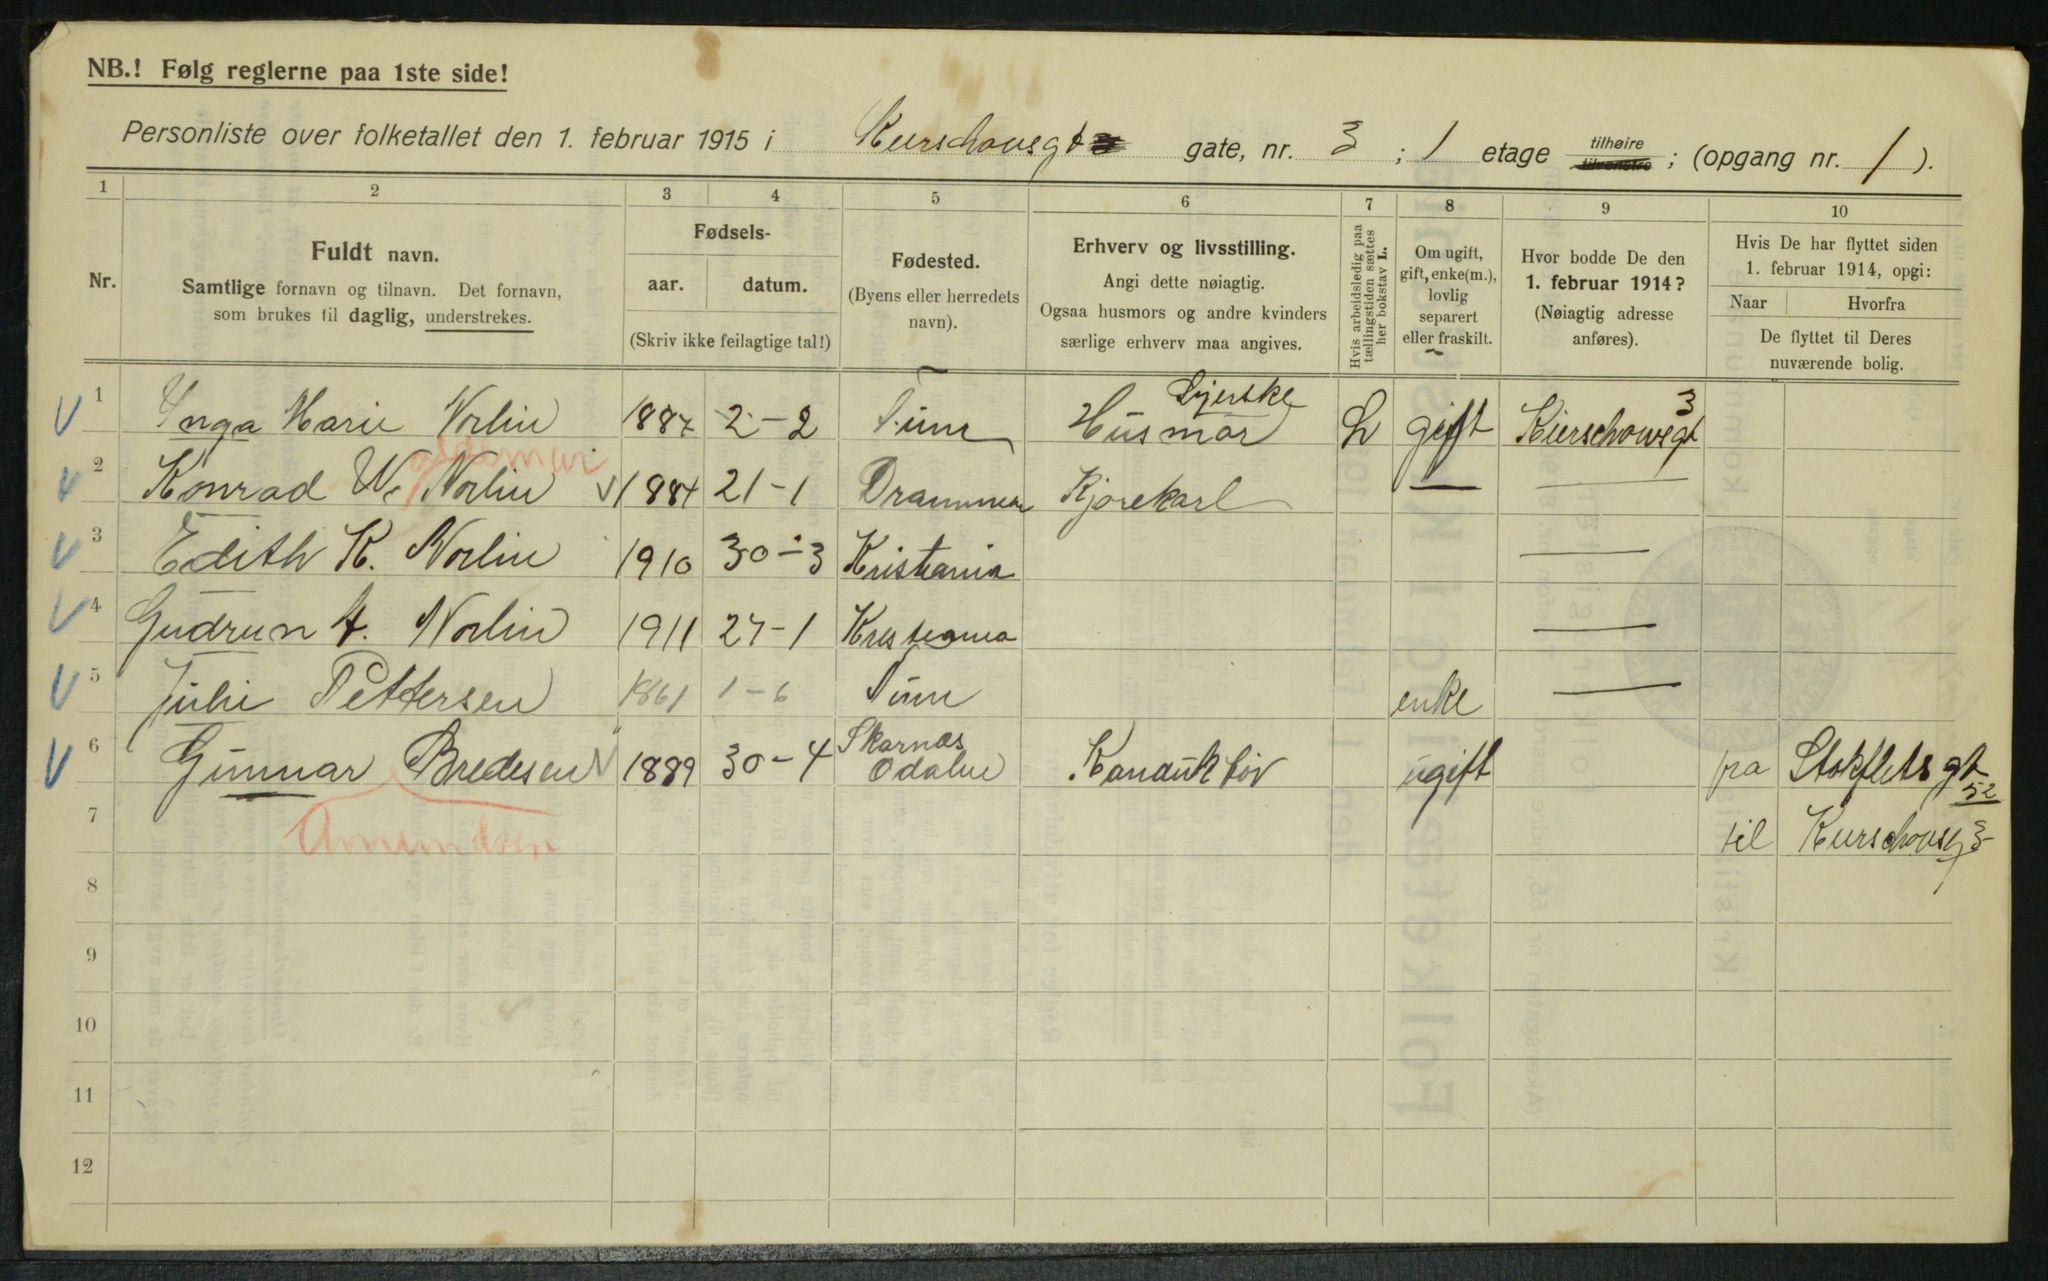 NB.! Følg reglerne paa 1ste side!
Personliste over folketallet den 1. februar 1915 i Kierschousgt gate, nr. 3 ; 1 etage tilhøire tilvenstre ; (opgang nr. 1 ).
1 2 3 4 5 6 7 8 9 10
Nr.
Fuldt navn.
Samtlige fornavn og tilnavn. Det fornavn,
som brukes til daglig, understrekes.
Fødsels-
aar. datum.
(Skriv ikke feilagtige tal!)
Fødested.
(Byens eller herredets
navn).
Erhverv og livsstilling.
Angi dette nøiagtig.
Ogsaa husmors og andre kvinders
særlige erhverv maa angives.
Hvis arbeidsledig paa
tællingstiden sættes
her bokstav L.
Om ugift,
gift, enke(m.),
lovlig
separert
eller fraskilt.
Hvor bodde De den
1. februar 1914?
(Nøiagtig adresse
anføres).
Hvis De har flyttet siden
1. februar 1914, opgi:
Naar Hvorfra
De flyttet til Deres
nuværende bolig.
Syerske 3
1 Inga Marie Norlin 1887 2-2 Tune Husmor L gift Kierschousgt
aldemar
2 Konrad W. Norlin 1884 21-1 Drammen Kjørekarl —
3 Edith K. Norlin 1910 30-3 Kristiania —
4 Gudrun A. Norlin 1911 27-1 Kristiania —
5 Julie Pettersen 1861 1-6 Tune enke —
6 Gunnar Bredesen 1889 30-4 Skarnæs Odalen ugift fra Stokflets gt 52
7 Amundsen til Kierschousg 3
8
9
10
11
12